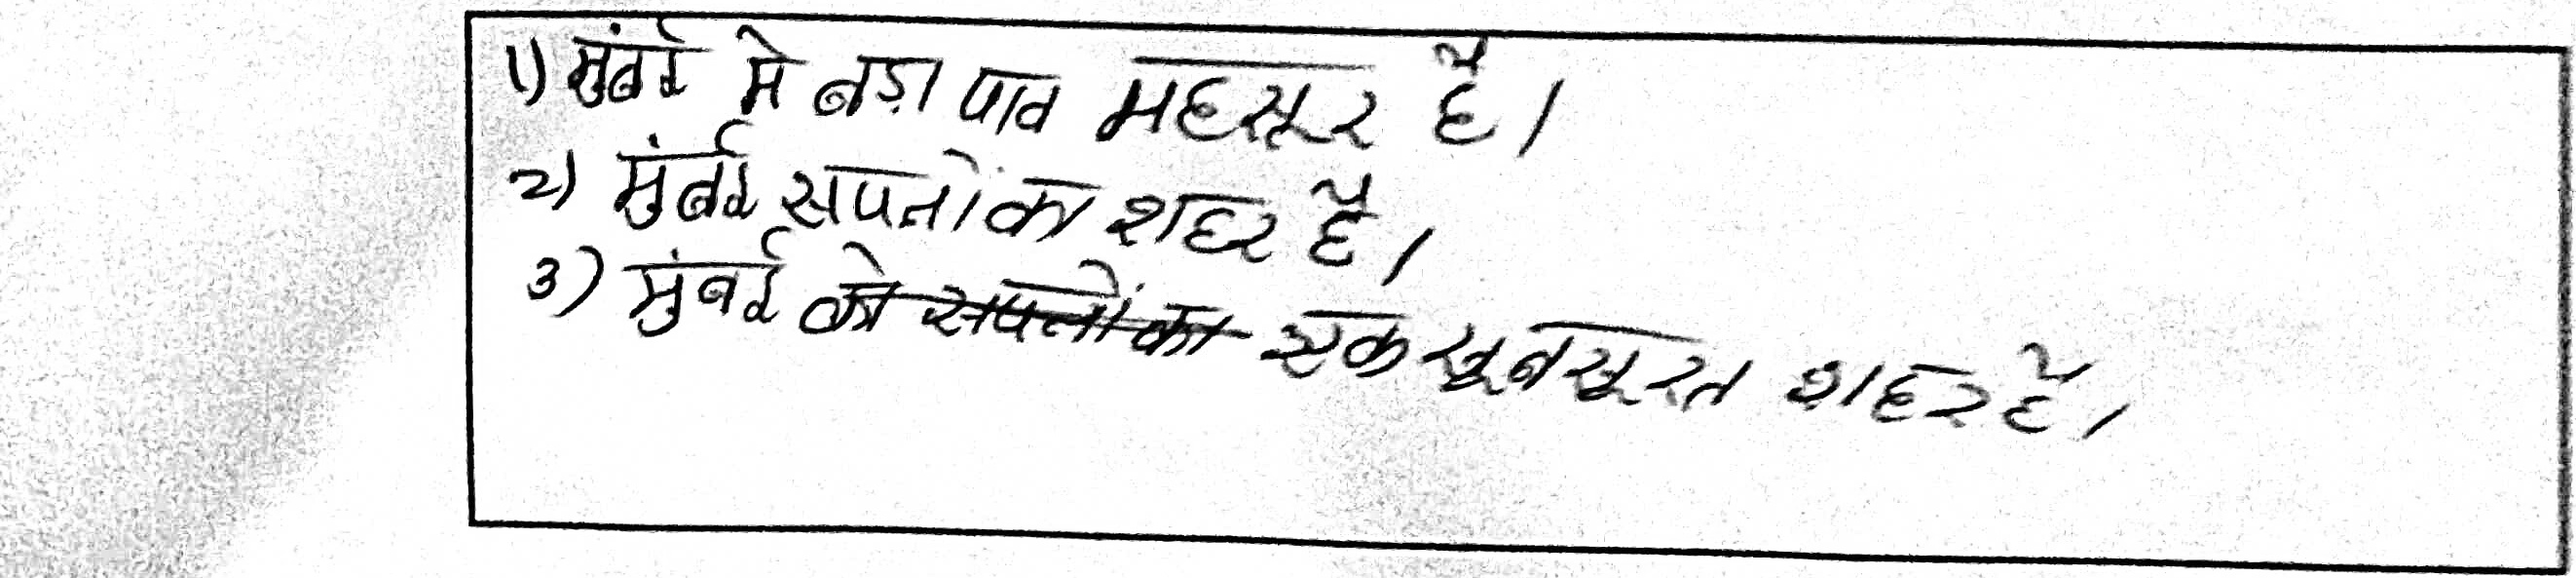 1) मुंबई मे बड़ा पाव महसूर है।
2) मुंबई सपनों का शहर है।
3) मुंबई को सपनों का एक खूबसूरत शहर है।